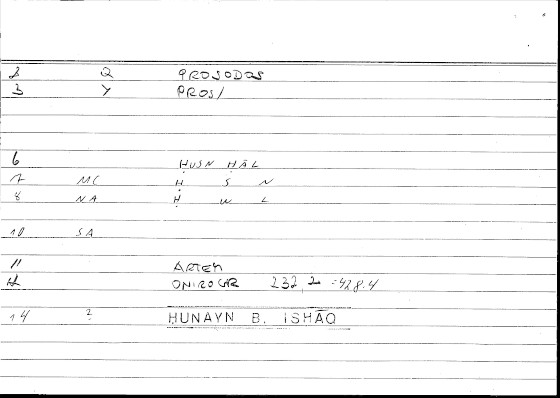 2 Q PROSODOS
3 Y PROS/
6 ḤUSN ḤĀL
7 MC Ḥ S N
8 NA Ḥ W L
10 SA
11 ARTEM
12 ONIROCR 232, 2 =428.4
14 2 HUNAYN B. ISHĀQ